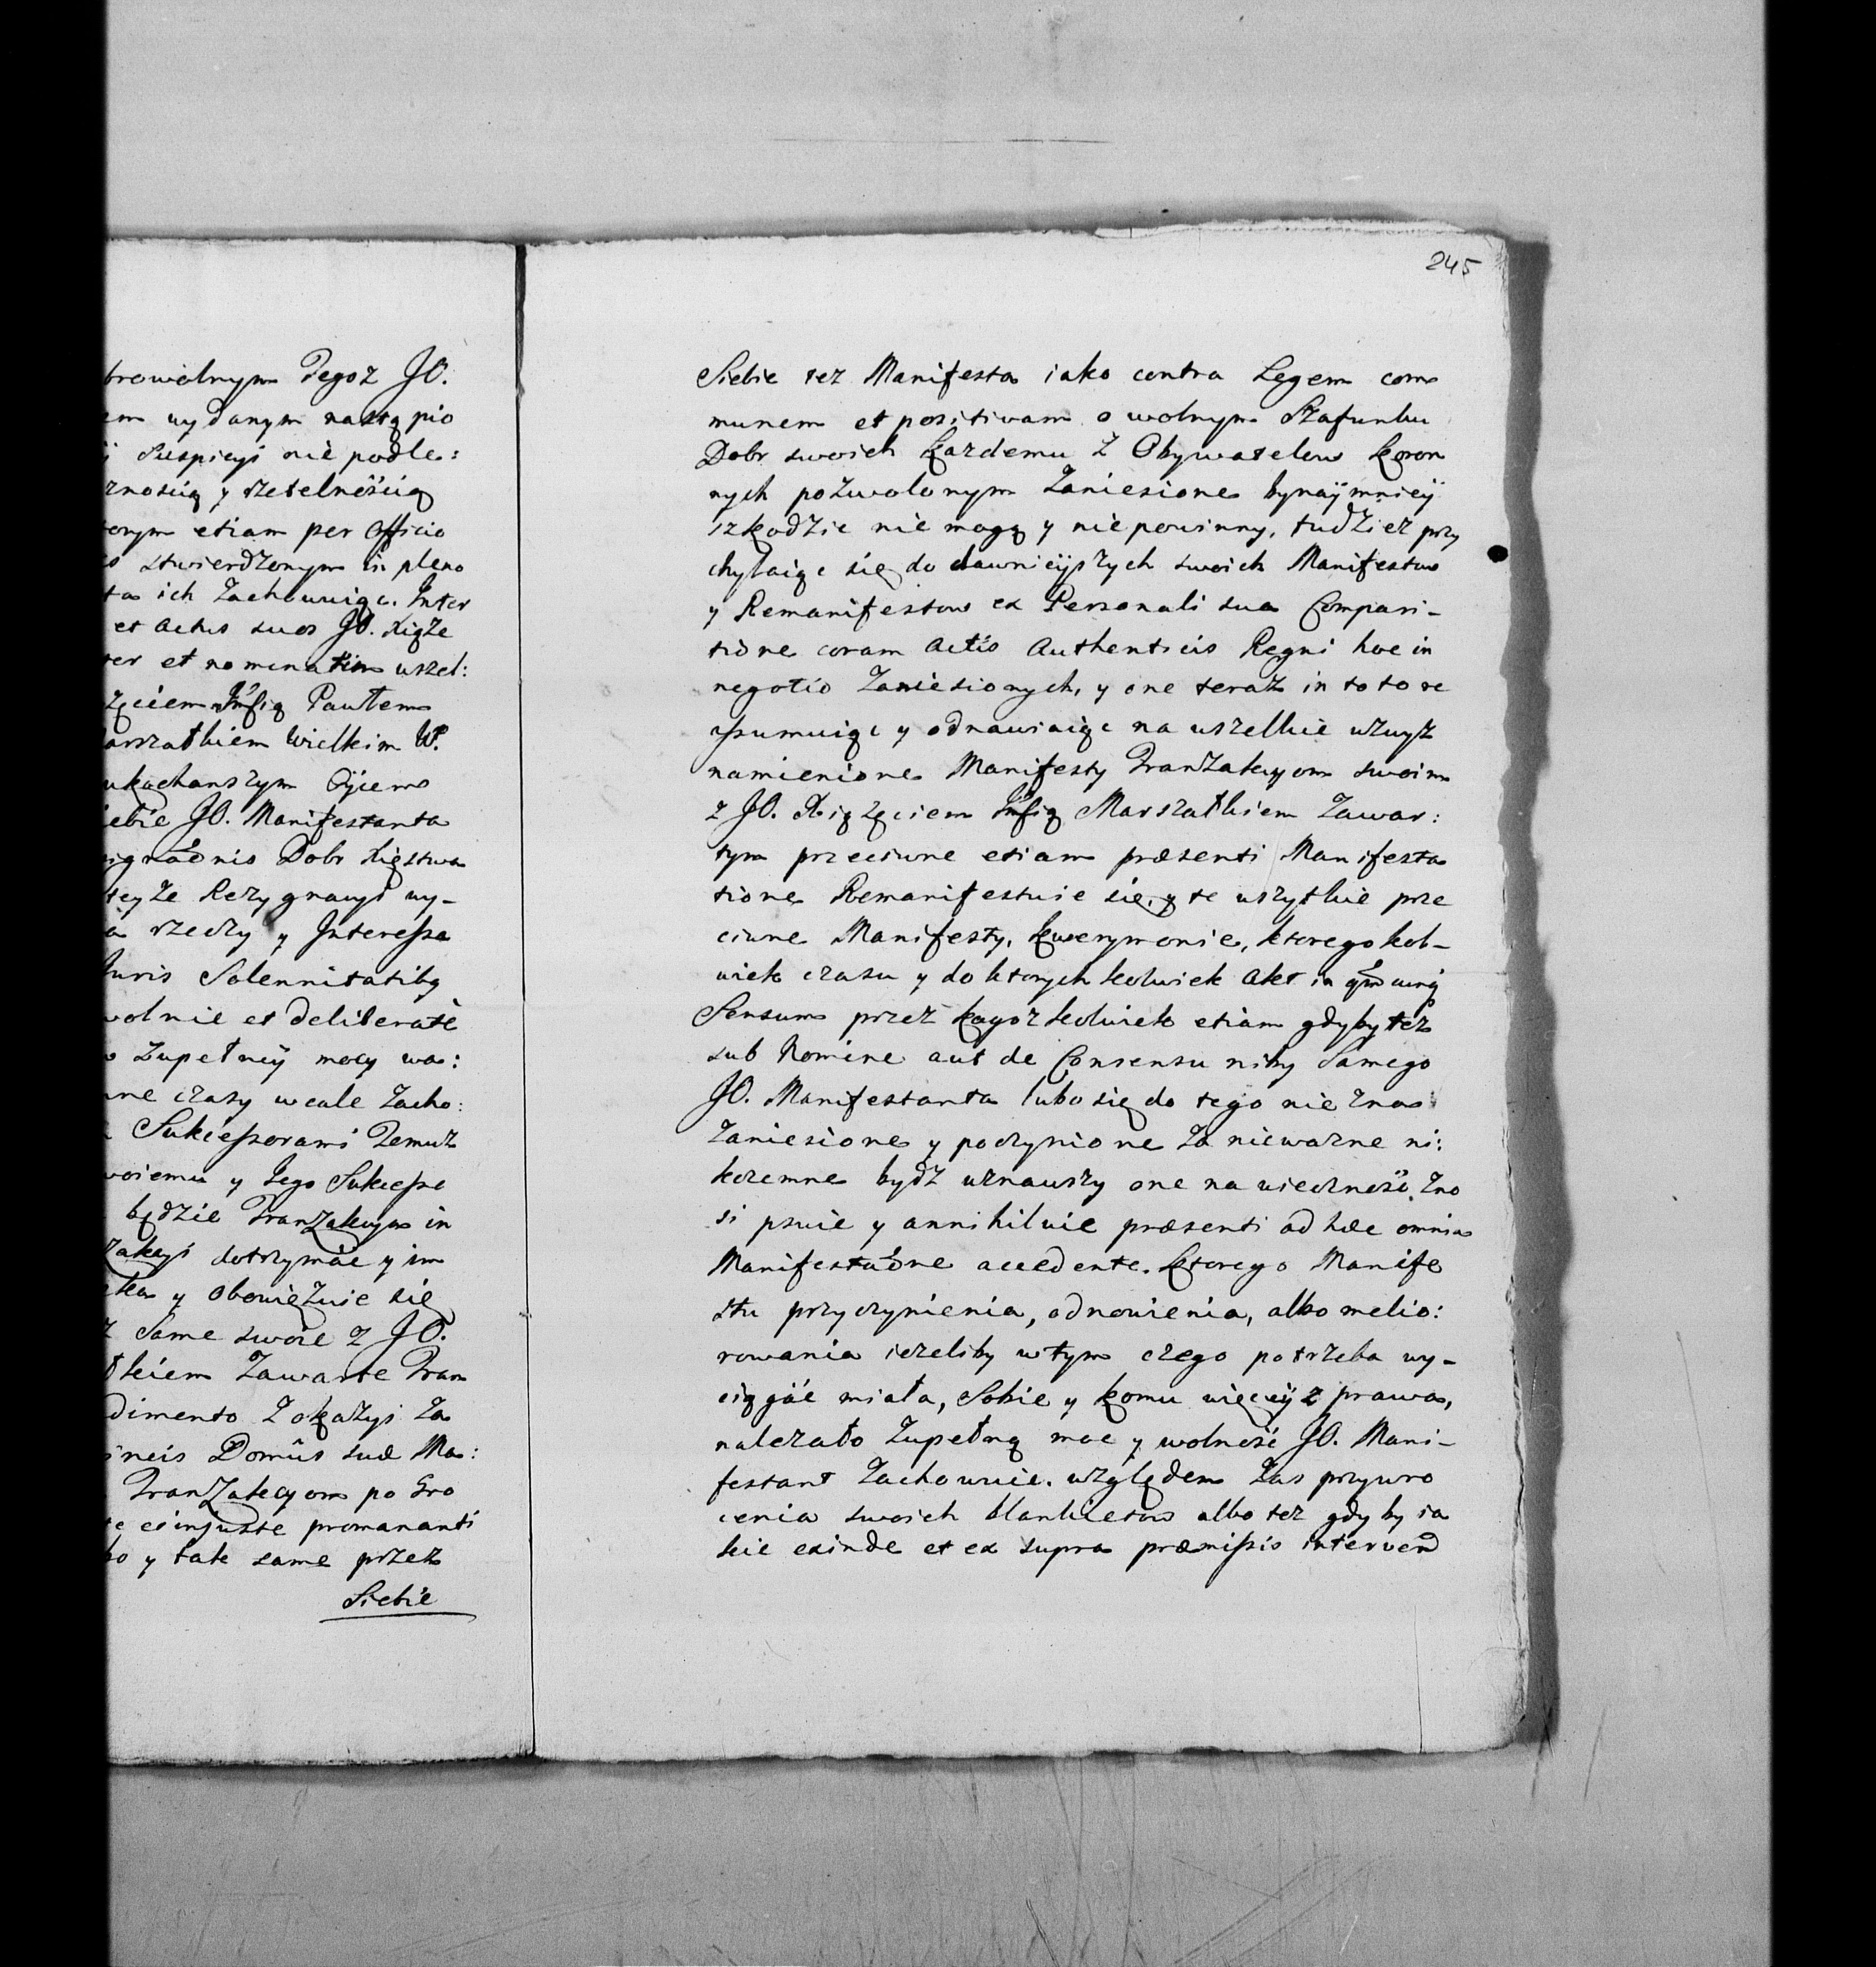 browolnym Tegoż JO.
em wydanym nastąpio
i Suspicyi nie podle:
znością y rzetelnością
torym etiam per Officia
o stwierdzonym in pleno
ta ich Zachowuiąc. Inter
et actus suos JO. Xiąże
ter et nominatim wszel:
żęciem Pawłem
arszałkiem Wielkim W.
ukochanszym Oycem
iebie JO. Manifestanta
Dobr Xięstwa
teyże Rezygnacyi wy-
a rzeczy y Interessa
Juris Solennitatibq
wolnie et deliberatè
w zupełney mocy wa:
ne czasy wcale zacho:
Sukcessorami Temuż
woiemu y Jego Sukcesso
będzie Tranzakcyą in
zakcyi dotrzymać y im
eka y obowiązuie się
ż Same swoie z JO.
łkiem Zawarte Tran
dimento z okazyi Za
ineis Domûs suæ Ma:
Tranzakcyom po Gro
te ei injuste promananti
ko y tak same przez
Siebie
245
Siebie też Manifesta iako contra Legem com
munem et positivam o wolnym Szafunku
Dobr swoich Każdemu z Obywatelow Koron
nych pozwolonym Zaniesione bynaÿmnieÿ
szkodzic nie mogą y nie powinny, tudzież przy
chylaiąc się do dawnieÿszych swoich Manifestow
y Remanifestow ex Personali sua Compari-
tione coram Actis Authenticis Regni hoc in
negotio Zaniesionych, y one teraz in toto re
ssumuiąc y odnawiaiąc na wszelkie wzwyż
namienione Manifesty Tranzakcyom swoim
z JO. Xiążęciem Marszałkiem Zawar:
tym przeciwne etiam præsenti Manifesta
tione Remanifestuie się, y te wszytkie prze
ciwne Manifesty, Kwerymonie, ktoregokol-
wiek czasu y do ktorych kolwiek Akt in
Sensum przez kogoż kolwiek etiam gdyby też
sub Nomine aut de Consensu niby Samego
JO. Manifestanta lubo się do tego nie zna
Zaniesione y poczynione Za nieważne ni:
kczemne bydź uznawszy one na wieczność, Zno
si psuie y annihiluie præsenti ad hæc omnia
Manifestaõne accedente. Ktorego Manife
stu przyczynienia, odnowienia, albo melio:
rowania ieżeliby w tym czego potrzeba wy-
ciągać miała, Sobie y komu więceÿ z prawa,
należało Zupełną moc y wolność JO. Mani-
festant Zachowuie. względem Zas przywro
cenia swoich blankietow albo też gdyby ia
kie exinde et ex supra præmissis interven